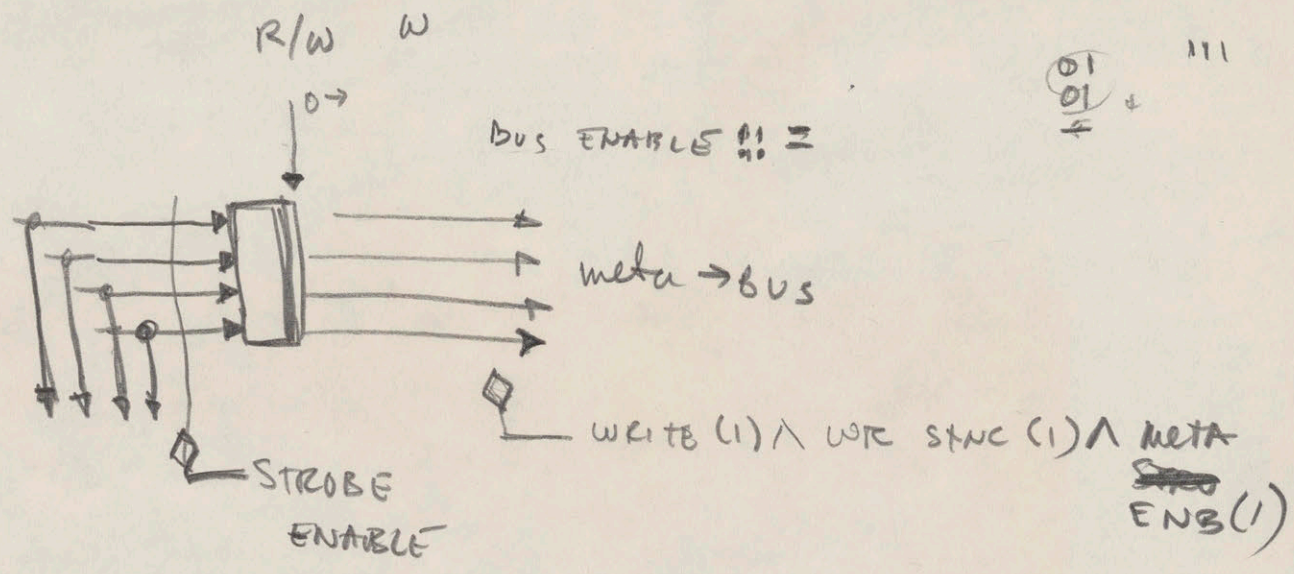 R/W W
0→
01
01 +
111
BUS ENABLE
meta → BUS
WRITE (1) ∧ WR SYNC (1) ∧ META
ENB(1)
STROBE
ENABLE